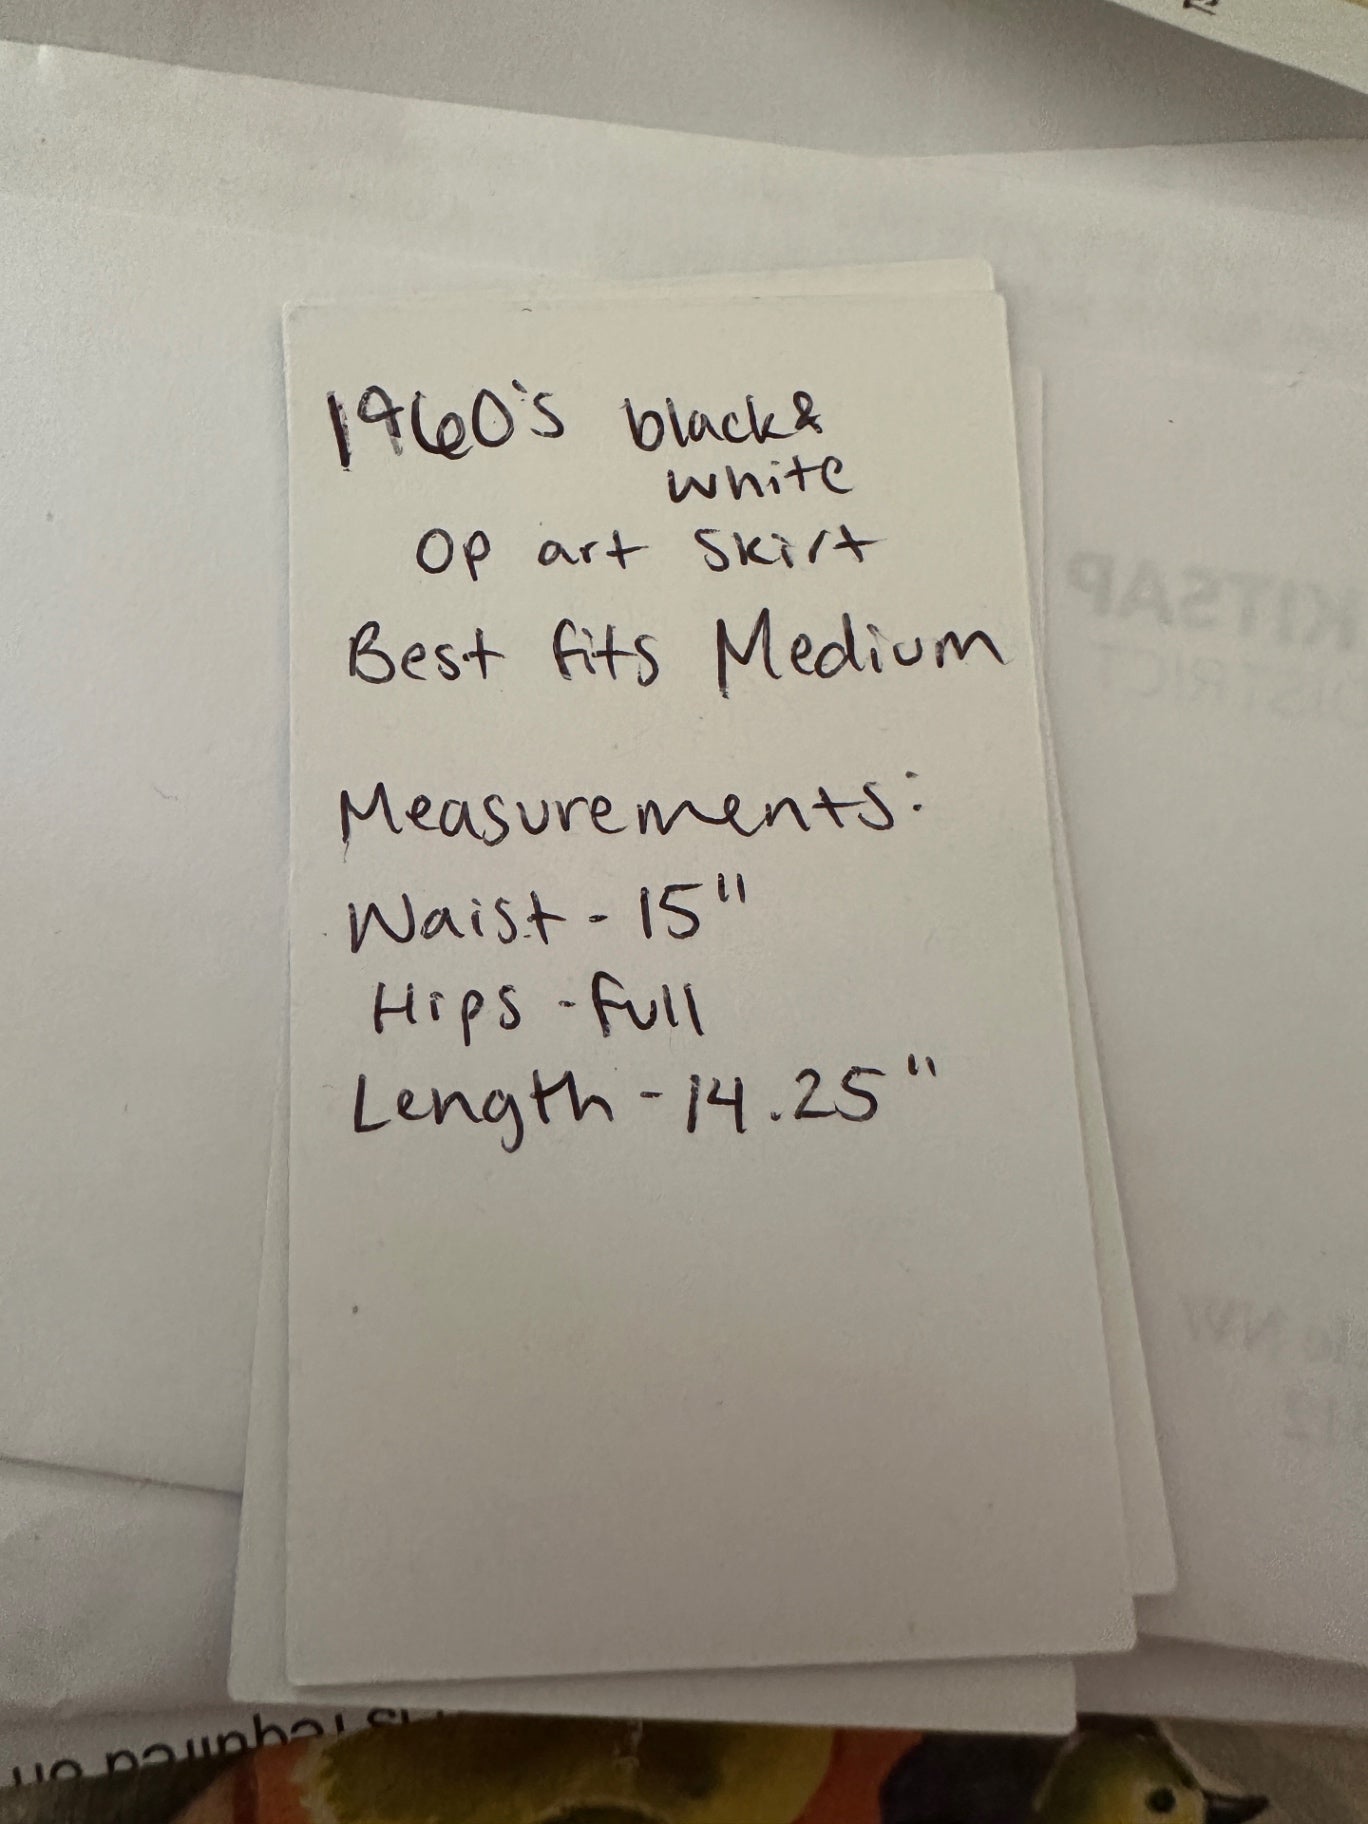 1960's black &
white
Op art skirt
Best fits Medium
Measurements:
Waist - 15"
Hips - full
Length - 14.25"
KITSAP
DISTRICT
required on